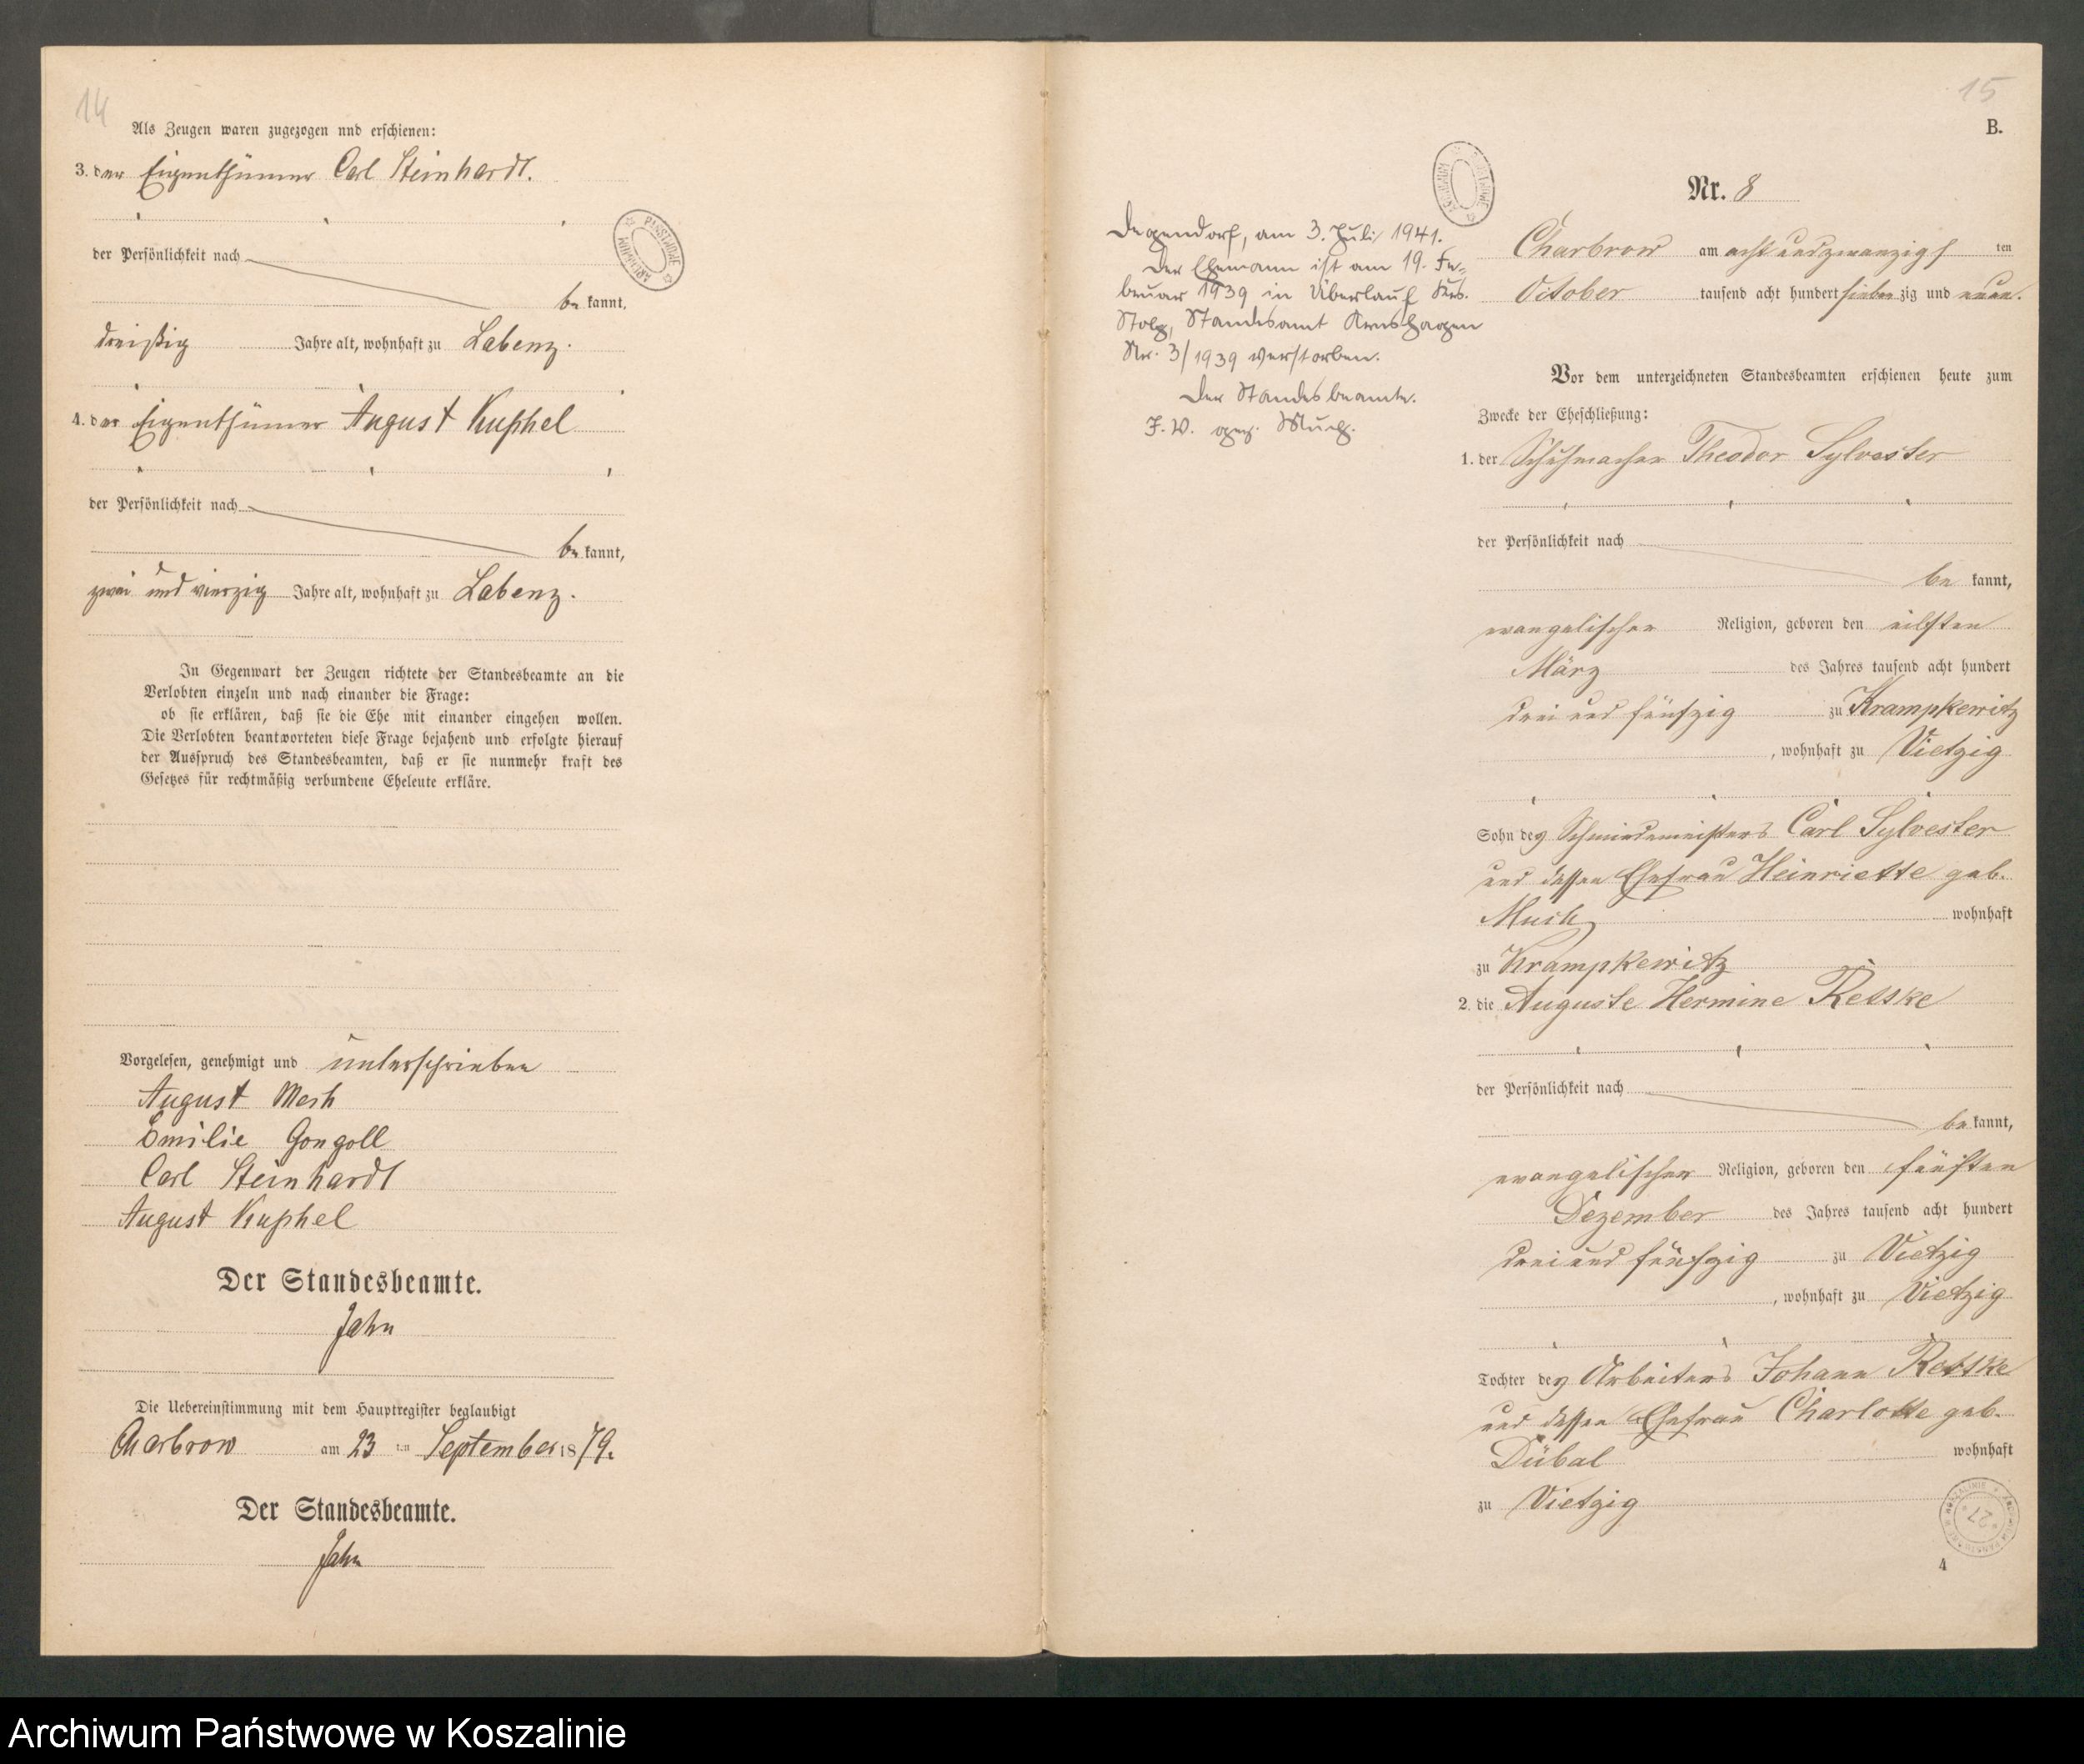 14
Als Zeugen waren zugezogen nnd erschienen:
3. der Eigenthümer Carl Steinhardt.
der Persönlichkeit nach
be kannt,
dreißig Jahre alt, wohnhaft zu Labenz.
4. der Eigenthümer August Kuphel
der Persönlichkeit nach
be kannt,
zwei und vierzig Jahre alt, wohnhaft zu Labenz.
In Gegenwart der Zeugen richtete der Standesbeamte an die
Verlobten einzeln und nach einander die Frage:
ob sie erklären, daß sie die Ehe mit einander eingehen wollen.
Die Verlobten beantworteten diese Frage bejahend und erfolgte hierauf
der Ausspruch des Standesbeamten, daß er sie nunmehr kraft des
Gesetzes für rechtmäßig verbundene Eheleute erkläre.
Vorgelesen, genehmigt und unterschrieben
August
Emilie Gongoll
Carl Steinhardt
August Kuphel
Der Standesbeamte.
Jahn
Die Uebereinstimmung mit dem Hauptregister beglaubigt
Charbrow am 23 ten September 1879.
Der Standesbeamte.
Jahn
15
B.
Nr. 8
Charbrow am acht und zwanzigs ten
October tausend acht hundert sieben zig und neun.
Degendorf, am 3. Juli 1941.
Der Ehemann ist am 19. Fe-
bruar 1939 in Überlauf Krs.
Stolp, Standesamt Arnshagen
Nr. 3/1939 verstorben.
Der Standesbeamte.
J. V. gez.
Vor dem unterzeichneten Standesbeamten erschienen heute zum
Zwecke der Eheschließung:
1. der Schuhmacher Theodor Sylvester
der Persönlichkeit nach
be kannt,
evangelischer Religion, geboren den eilften
März des Jahres tausend acht hundert
drei und fünfzig zu Krampkewitz
, wohnhaft zu Vietzig
Sohn des Schmiedemeisters Carl Sylvester
und dessen Ehefrau Heinriette geb.
wohnhaft
zu Krampkewitz
2. die Auguste Hermine Retske
der Persönlichkeit nach
be kannt,
evangelischer Religion, geboren den fünften
Dezember des Jahres tausend acht hundert
drei und fünfzig zu Vietzig
, wohnhaft zu Vietzig
Tochter des Arbeiters Johann Retske
und dessen Ehefrau Charlotte geb.
Dübal wohnhaft
zu Vietzig
27
4
Archiwum Państwowe w Koszalinie